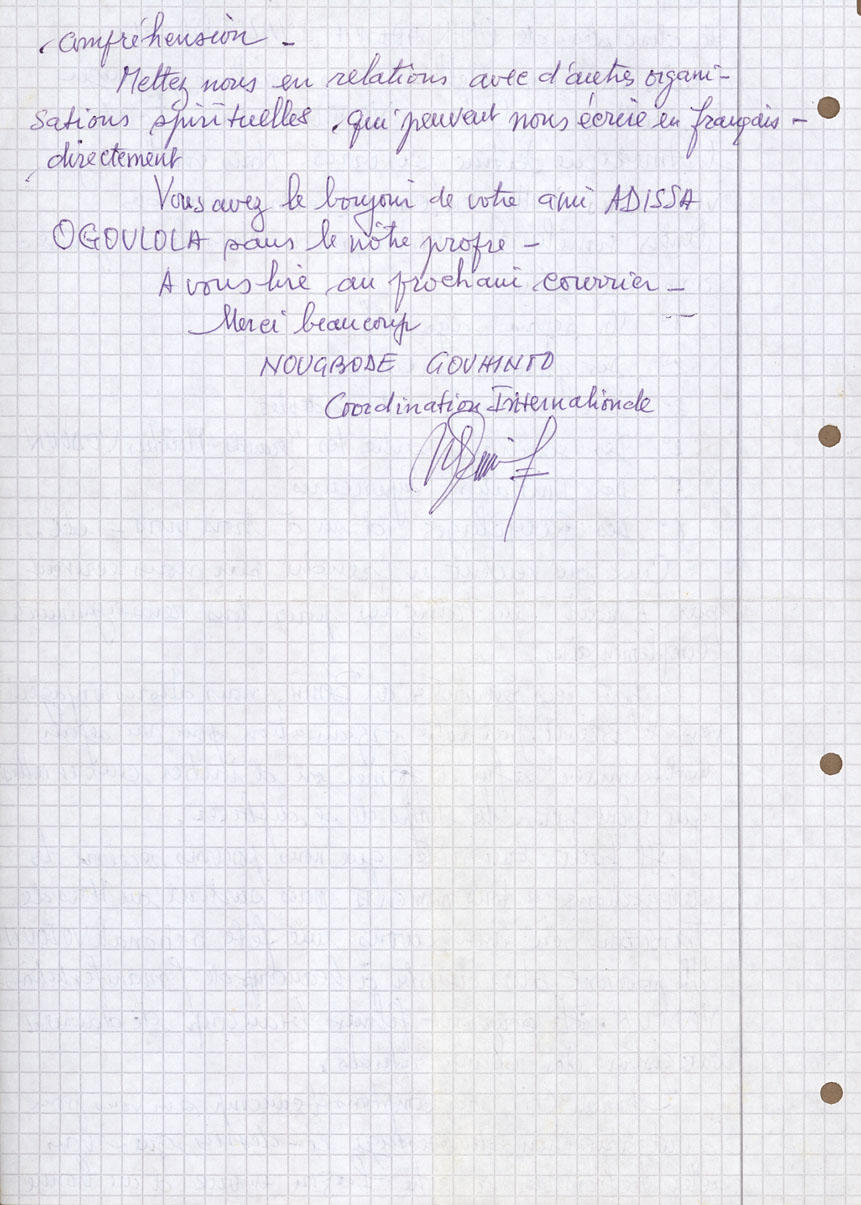 compréhension -
Mettez nous en relations avec d'autres organi-
sations spirituelles qui peuvent nous écrire en français -
directement
Vous avez le bonjour de votre ami ADISSA
OGOULOLA sans le nôtre propre -
A vous lire au prochain courrier -
Merci beaucoup
NOUGBODE GOUHINTO
Coordination Internationale